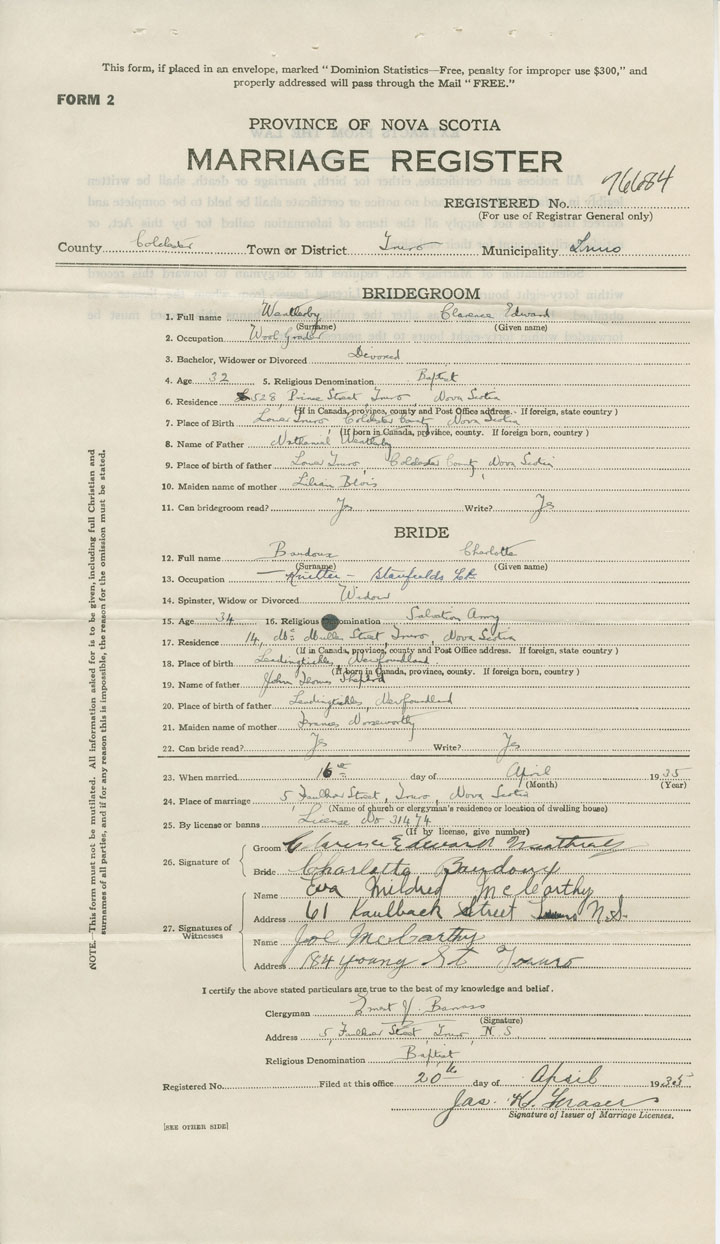 This form, if placed in an envelope, marked "Dominion Statistics—Free, penalty for improper use $300," and
properly addressed will pass through the Mail "FREE."
FORM 2
PROVINCE OF NOVA SCOTIA
MARRIAGE REGISTER
76684
REGISTERED No.
(For use of Registrar General only)
County Colchester Town or District Truro Municipality Truro
BRIDEGROOM
1. Full name Weatherby Clarence Edward
(Surname) (Given name)
2. Occupation Wool Grader
3. Bachelor, Widower or Divorced Divorced
4. Age 32 5. Religious Denomination Baptist
6. Residence 528, Prince Street, Truro, Nova Scotia
(If in Canada, province, county and Post Office address. If foreign, state country)
7. Place of Birth Lower Truro Colchester County Nova Scotia
(If born in Canada, province, county. If foreign born, country)
8. Name of Father Nathaniel Weatherby
9. Place of birth of father Lower Truro, Colchester County, Nova Scotia
10. Maiden name of mother Lilian Blois
11. Can bridegroom read? Yes Write? Yes
BRIDE
12. Full name Bardoux Charlotte
(Surname) (Given name)
13. Occupation — Knitter — Stanfields Ltd.
14. Spinster, Widow or Divorced Widow
15. Age 34 16. Religious Denomination Salvation Army
17. Residence 14, Street, Truro, Nova Scotia
(If in Canada, province, county and Post Office address. If foreign, state country)
18. Place of birth Leadingtickles, Newfoundland
(If born in Canada, province, county. If foreign born, country)
19. Name of father John Thomas
20. Place of birth of father Leadingtickles, Newfoundland
21. Maiden name of mother Frances Noseworthy
22. Can bride read? Yes Write? Yes
23. When married 16th day of April 1935
(Month) (Year)
24. Place of marriage 5 Faulkner Street, Truro, Nova Scotia
(Name of church or clergyman's residence or location of dwelling house)
25. By license or banns License No 31474
(If by license, give number)
26. Signature of
Groom Clarence Edward Weatherby
Bride Charlotte Bardoux
27. Signatures of Witnesses
Name Eva Mildred McCarthy
Address 61 Kaulback Street Truro N.S.
Name Joe McCarthy
Address 184 Young St Truro
I certify the above stated particulars are true to the best of my knowledge and belief.
Clergyman Ernest J. Barrass
(Signature)
Address 5, Faulkner Street, Truro, N.S
Religious Denomination Baptist
Registered No. Filed at this office 20th day of April 1935
Jas. H. Fraser
Signature of Issuer of Marriage Licenses.
[SEE OTHER SIDE]
NOTE.—This form must not be mutilated. All information asked for is to be given, including full Christian and
surnames of all parties, and if for any reason this is impossible, the reason for the omission must be stated.